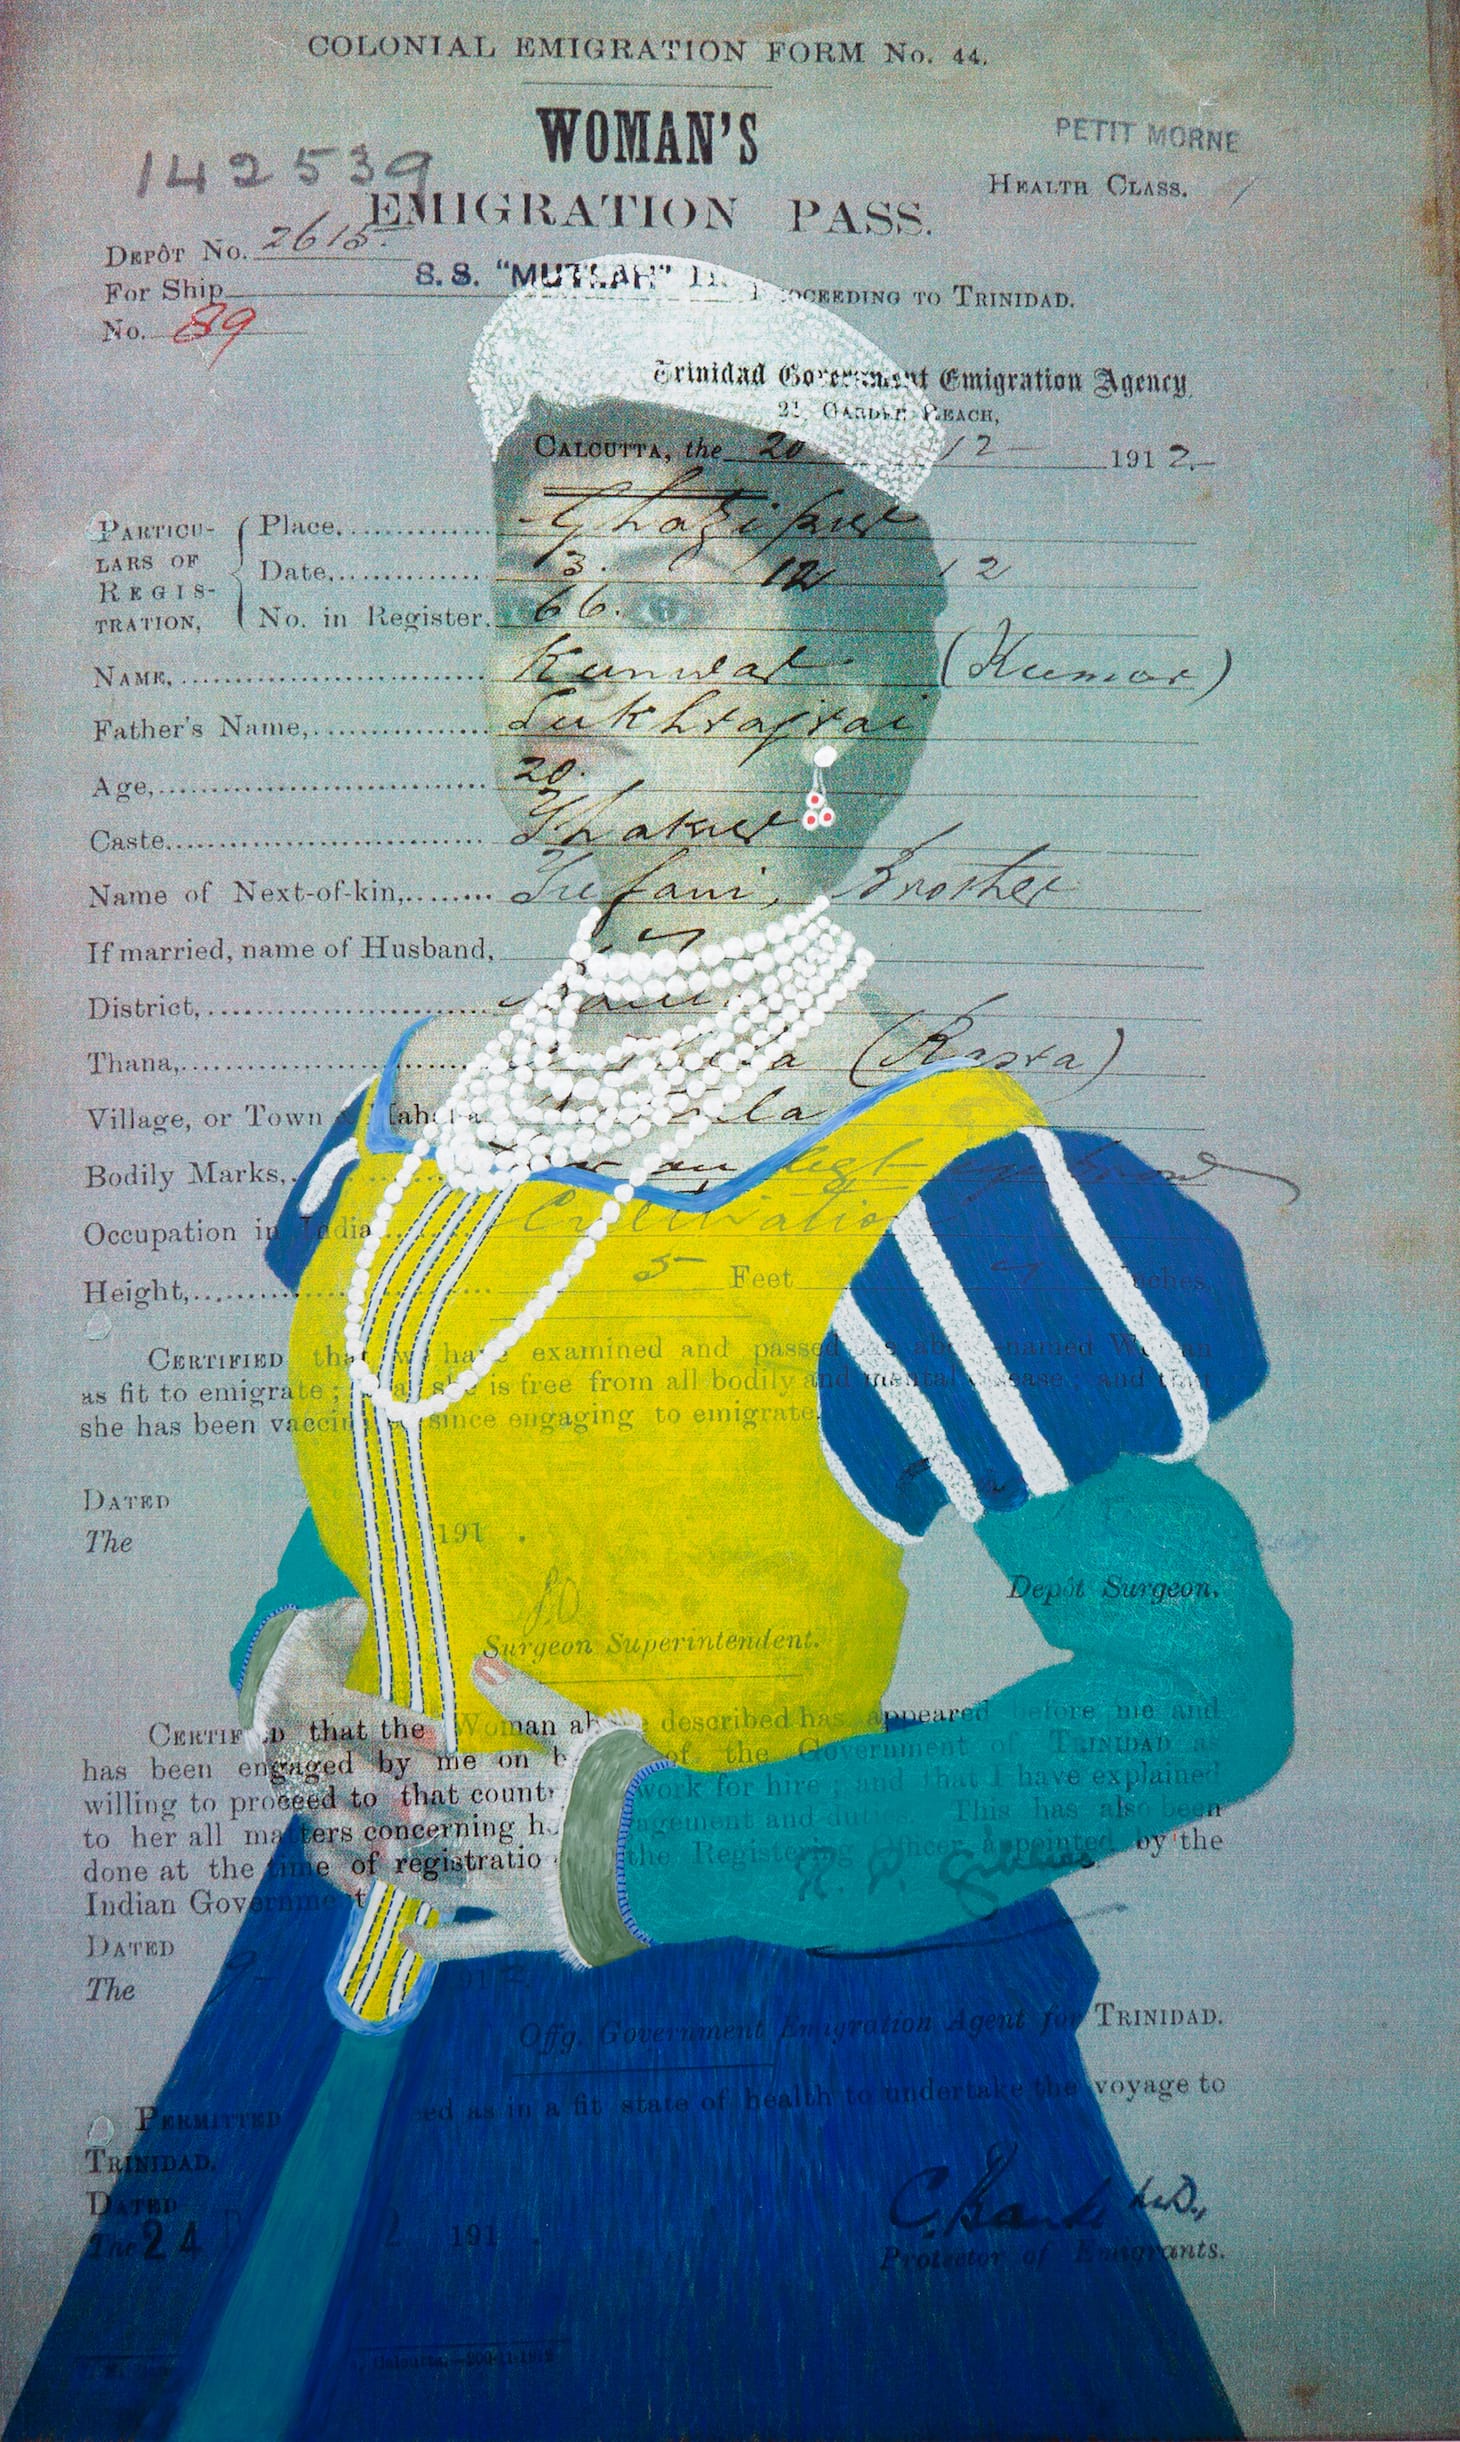 COLONIAL EMIGRATION FORM No. 44.
WOMAN'S
PETIT MORNE
142539
HEALTH CLASS. /
EMIGRATION PASS.
DEPÔT No. 2615
For Ship S. S. "MUTLAH" PROCEEDING TO TRINIDAD.
No. 89
Trinidad Government Emigration Agency
GARDEN REACH,
CALCUTTA, the 20 12 1912.
PARTICULARS OF REGISTRATION,
Place, Ghazipur
Date, 3. 12 12
No. in Register. 66.
NAME, Kunwar (Kumar)
Father's Name, Sukhrajrai
Age, 20.
Caste Thakur
Name of Next-of-kin, Tufani, Brother
If married, name of Husband,
District,
Thana, (Kasra)
Village, or Town &
Bodily Marks, Scar on left eyebrow
Occupation in India Cultivation
Height, 5 Feet 4 inches.
CERTIFIED that we have examined and passed the above-named Woman
as fit to emigrate; that she is free from all bodily and mental disease; and that
she has been vaccinated since engaging to emigrate.
DATED
The 191 .
Depôt Surgeon.
Surgeon Superintendent.
CERTIFIED that the Woman above described has appeared before me and
has been engaged by me on behalf of the Government of TRINIDAD as
willing to proceed to that country to work for hire; and that I have explained
to her all matters concerning her engagement and duties. This has also been
done at the time of registration by the Registering Officer appointed by the
Indian Government
DATED
The 9 191
Offg. Government Emigration Agent for TRINIDAD.
PERMITTED ed as in a fit state of health to undertake the voyage to
TRINIDAD.
DATED
The 24 191 .
C. Banks M.D.,
Protector of Emigrants.